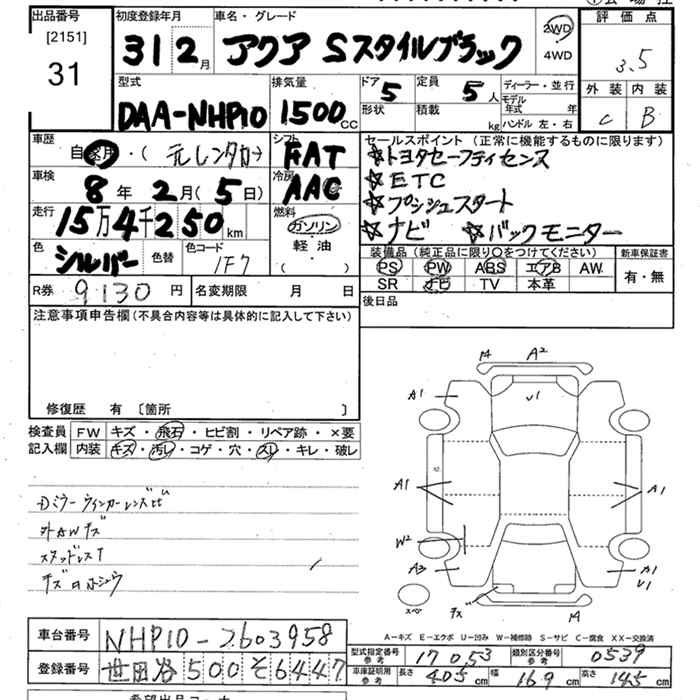 出品番号 初度登録年月 車名・グレード 評価点
[2151] 31 31 2月 アクア Sスタイルブラック 2WD 4WD 3.5
型式 排気量 ドア 5 定員 5人 ディーラー・並行 外装 内装
DAA-NHP10 1500cc 形状 積載 kg モデル年式 年 ハンドル 左・右 C B
車歴 自家用・(元レンタカー) シフト FAT セールスポイント (正常に機能するものに限ります)
☆トヨタセーフティセンス
車検 8年 2月(5日) 冷房 AAC ☆ETC
☆プッシュスタート
走行 15万4千250km 燃料 ガソリン ☆ナビ ☆バックモニター
軽油 ( )
色 シルバー 色替 色コード 1F7 装備品 (純正品に限り○をつけてください) 新車保証書
PS PW ABS エアB AW 有・無
R券 9130円 名変期限 月 日 SR ナビ TV 本革
注意事項申告欄 (不具合内容等は具体的に記入して下さい) 後日品
修復歴 有 [箇所 ]
検査員 FW キズ・飛石・ヒビ割・リペア跡・×要
記入欄 内装 キズ・汚レ・コゲ・穴・スレ・キレ・破レ
ミラーウィンカーレンズヒビ
外AWキズ
スタッドレスT
14 A2
A1 U1 A1
A1 A1
W2
A3 A1
U1
スペア キズ 14
A-キズ E-エクボ U-凹み W-補修跡 S-サビ C-腐食 XX-交換済
車台番号 NHP10-2603958
型式指定番号 参考 17053 類別区分番号 参考 0539
登録番号 世田谷 500 そ 6447
車庫証明用 参考 長さ 405cm 幅 169cm 高さ 145cm